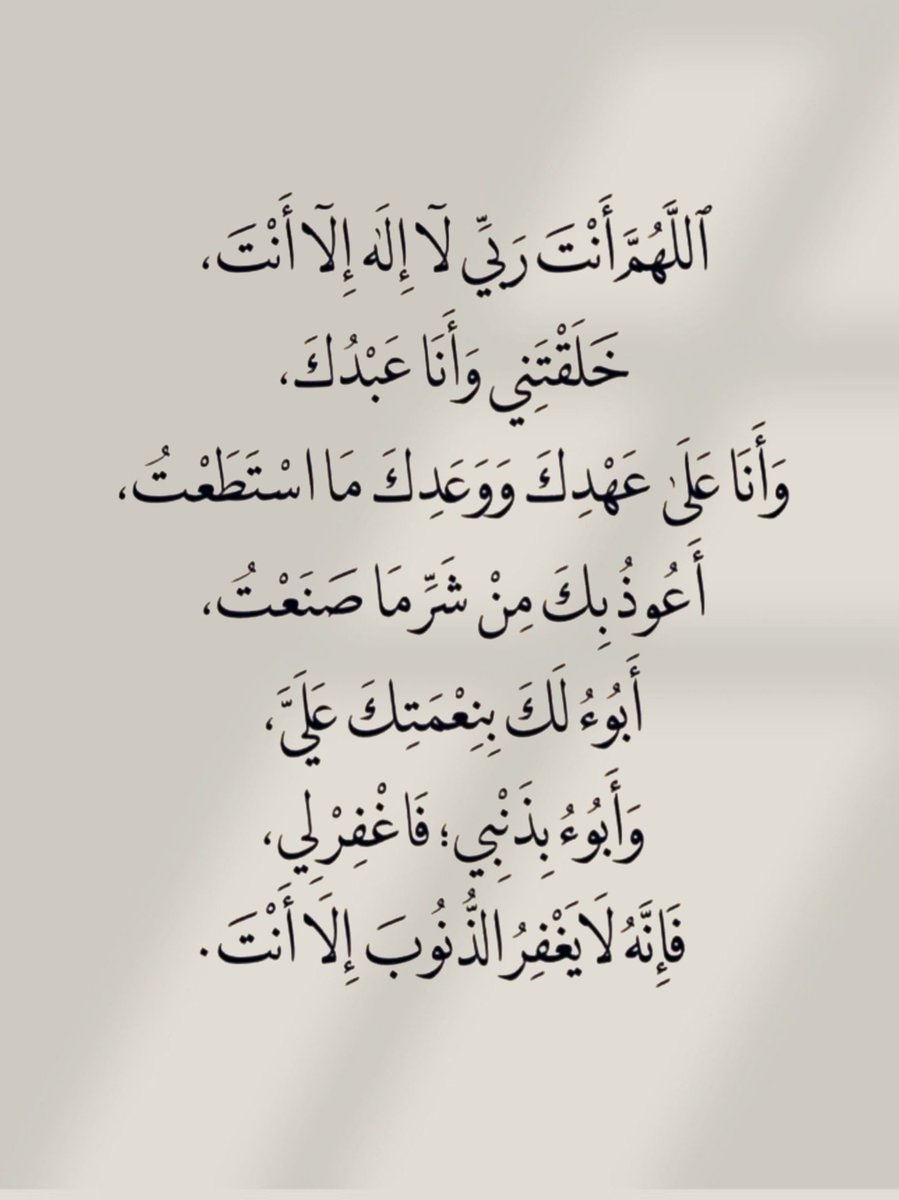 ٱللَّهُمَّ أَنْتَ رَبِّي لَآ إِلَٰه إِلَآ أَنْتَ،
خَلَقْتَنِي وَأَنَا عَبْدُكَ،
وَأَنَا عَلَىٰ عَهْدِكَ وَوَعَدِكَ مَا اسْتَطَعْتُ،
أَعُوذُ بِكَ مِنْ شَرِّ مَا صَنَعْتُ،
أَبُوءُ لَكَ بِنِعْمَتِكَ عَلَيَّ،
وَأَبُوءُ بِذَنْبِي؛ فَاغْفِرْ لِي،
فَإِنَّهُ لَا يَغْفِرُ الذُّنُوبَ إِلَا أَنْتَ.